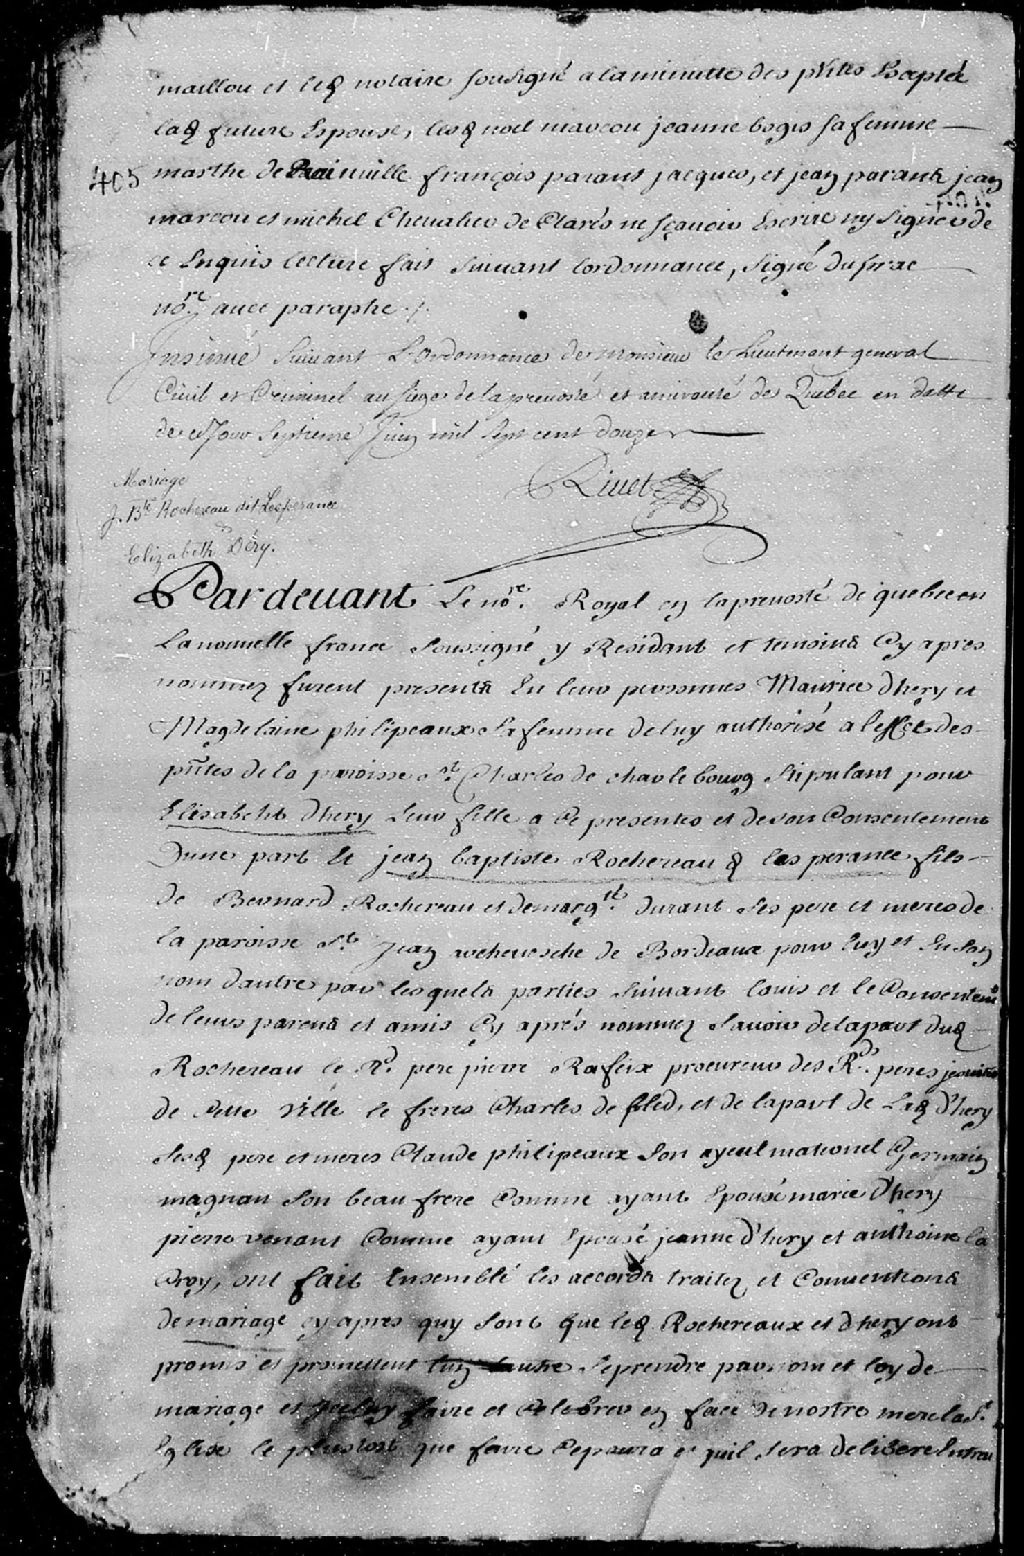 maillou et led notaire sousigné a laminutte des pntes Excepté
lad future Espouse, lesd noel marcou jeanne bogis sa femme
405 marthe de Rainville françois parant jacques, et jean parants jean
marcou et michel Chevalier de Clarés ne sçauoir Escrire ny signer de
ce Enquis lecture fait suiuant lordonnance, Signé dufrac
nore. auec paraphe ./.
Insinué Suiuant L'Ordonnance de monsieur le Lieutenant general
Ciuil et Criminel au siege de la preuosté et amirauté de Quebec en datte
de ce Jour Septieme Juin mil sept cent douze
Riuet
Mariage
J. Bte Rochereau dit Lesperance
Elizabeth Déry.
Pardeuant Le nore. Royal en la preuosté de quebec en
La nouuelle france soussigné y Residant et temoins Cy apres
nommez furent presents En leurs personnes Maurice d'hery et
Magdelaine philipeaux sa femme de luy authorisé a leffet des
pntes de la paroisse St. Charles de charlebourg stipulant pour
Elisabeht d'hery leur fille a Ce presentes et de son Consentement
dune part Et jean baptiste Rochereau d lasperance fils
de Bernard Rochereau et de margte. durant ses pere et mere de
la paroisse St. Jean de Bordeaux pour luy et En son
nom dautre part lesquels parties suiuant lauis et le Consentemt
de leurs parens et amis Cy aprés nommez sauoir de la part dud
Rochereau le Rd. pere pierre Rafeix procureur des Rds. peres jesuittes
de cette ville le frere Charles de et de la part de Lad d'hery
sesd pere et mere Claude philipeaux son ayeul maternel Germain
magnan son beau frere Comme ayant Epousé marie d'hery
pierre venant Comme ayant Epousé jeanne d'hery et anthoine la
Croy, ont fait Ensemble les accords traitez et Conuentions
de mariage cy apres quy sont que lesd Rochereaux et d'hery ont
promis et promettent luy lautre se prendre par nom et loy de
mariage et Jceluy faire et Celebrer en face de nostre mere la Ste
Eglise le plustost que faire Ce poura et quil sera deliberé Entreu